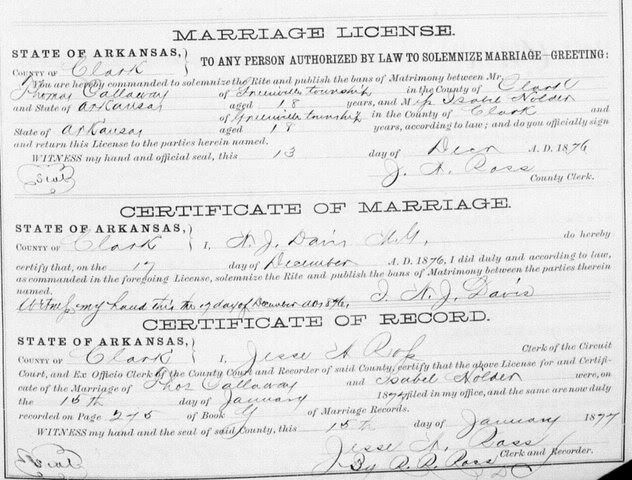 MARRIAGE LICENSE.
STATE OF ARKANSAS,
COUNTY OF Clark
TO ANY PERSON AUTHORIZED BY LAW TO SOLEMNIZE MARRIAGE—GREETING:
You are hereby commanded to solemnize the Rite and publish the bans of Matrimony between Mr.
Thomas Callaway of Greenville township in the County of Clark
and State of Arkansas aged 18 years, and Miss Isabel Holder
of Greenville township, in the County of Clark and
State of Arkansas aged 18 years, according to law; and do you officially sign
and return this License to the parties herein named.
WITNESS my hand and official seal, this 13 day of Decr A. D. 1876
Seal J. A. Ross
County Clerk.
CERTIFICATE OF MARRIAGE.
STATE OF ARKANSAS,
COUNTY OF Clark I, N. J. Davis do hereby
certify that, on the 17 day of December A. D. 1876, I did duly and according to law,
as commanded in the foregoing License, solemnize the Rite and publish the bans of Matrimony between the parties therein
named.
Witness my hand this the 17 day of December AD 1876, N. J. Davis
CERTIFICATE OF RECORD.
STATE OF ARKANSAS,
COUNTY OF Clark I, Jesse A Ross Clerk of the Circuit
Court, and Ex Officio Clerk of the County Court and Recorder of said County, certify that the above License for and Certifi-
cate of the Marriage of Thos Callaway and Isabel Holder were, on
the 15th day of January 1877 filed in my office, and the same are now duly
recorded on Page 275 of Book G of Marriage Records.
WITNESS my hand and the seal of said County, this 15th day of January 1877
Jesse A. Ross
Seal By R. R. Ross DC Clerk and Recorder.